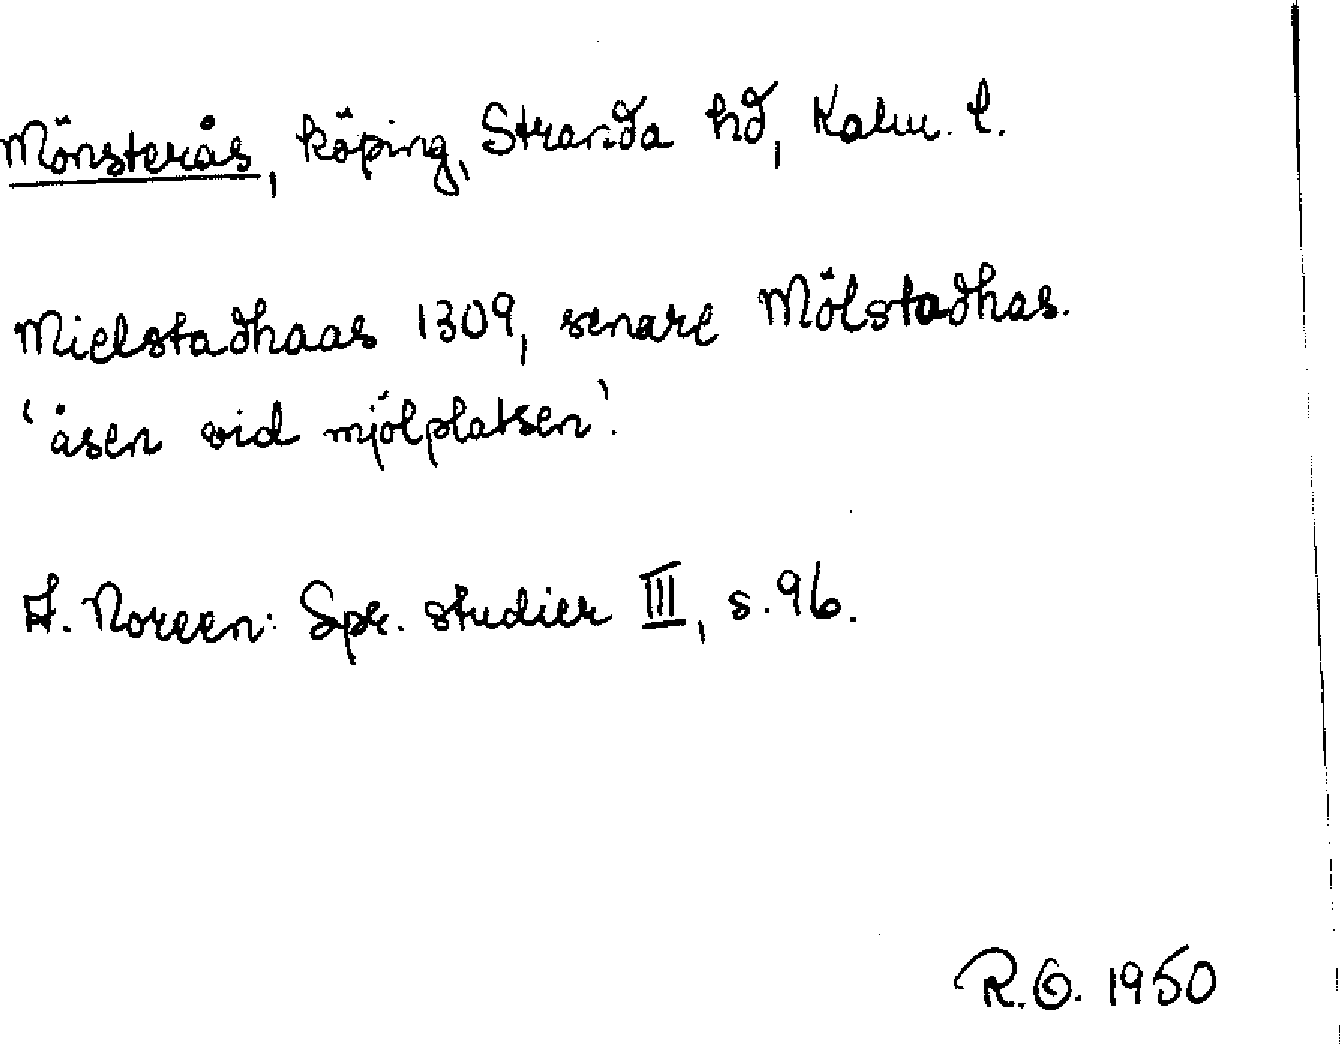 Mönsterås, köping, Stranda hd, Kalm. l.
Mielstadhaas 1309, senare Mölstadhas.
'åsen vid mjölplatsen'.
A. Noreen: Spr. studier III, s. 96.
R.O. 1950